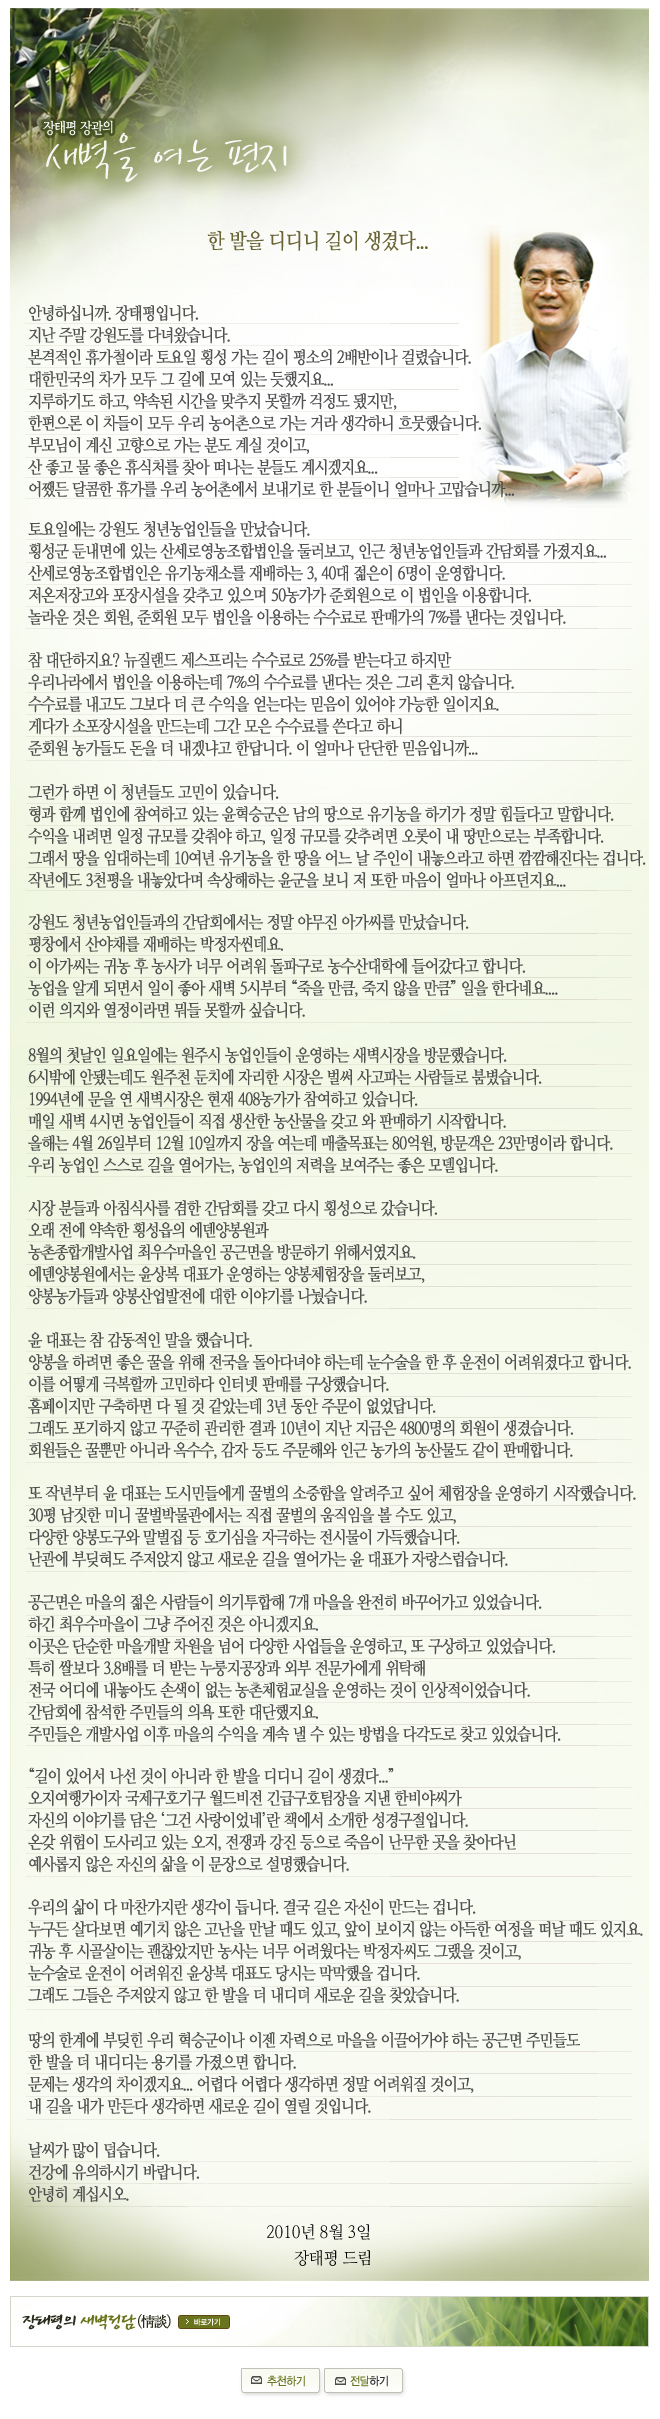 장태평 장관의
새벽을 여는 편지
한 발을 디디니 길이 생겼다...
안녕하십니까. 장태평입니다.
지난 주말 강원도를 다녀왔습니다.
본격적인 휴가철이라 토요일 횡성 가는 길이 평소의 2배반이나 걸렸습니다.
대한민국의 차가 모두 그 길에 모여 있는 듯했지요...
지루하기도 하고, 약속된 시간을 맞추지 못할까 걱정도 됐지만,
한편으론 이 차들이 모두 우리 농어촌으로 가는 거라 생각하니 흐뭇했습니다.
부모님이 계신 고향으로 가는 분도 계실 것이고,
산 좋고 물 좋은 휴식처를 찾아 떠나는 분들도 계시겠지요...
어쨌든 달콤한 휴가를 우리 농어촌에서 보내기로 한 분들이니 얼마나 고맙습니까...
토요일에는 강원도 청년농업인들을 만났습니다.
횡성군 둔내면에 있는 산세로영농조합법인을 둘러보고, 인근 청년농업인들과 간담회를 가졌지요...
산세로영농조합법인은 유기농채소를 재배하는 3, 40대 젊은이 6명이 운영합니다.
저온저장고와 포장시설을 갖추고 있으며 50농가가 준회원으로 이 법인을 이용합니다.
놀라운 것은 회원, 준회원 모두 법인을 이용하는 수수료로 판매가의 7%를 낸다는 것입니다.
참 대단하지요? 뉴질랜드 제스프리는 수수료로 25%를 받는다고 하지만
우리나라에서 법인을 이용하는데 7%의 수수료를 낸다는 것은 그리 흔치 않습니다.
수수료를 내고도 그보다 더 큰 수익을 얻는다는 믿음이 있어야 가능한 일이지요.
게다가 소포장시설을 만드는데 그간 모은 수수료를 쓴다고 하니
준회원 농가들도 돈을 더 내겠냐고 한답니다. 이 얼마나 단단한 믿음입니까...
그런가 하면 이 청년들도 고민이 있습니다.
형과 함께 법인에 참여하고 있는 윤혁승군은 남의 땅으로 유기농을 하기가 정말 힘들다고 말합니다.
수익을 내려면 일정 규모를 갖춰야 하고, 일정 규모를 갖추려면 오롯이 내 땅만으로는 부족합니다.
그래서 땅을 임대하는데 10여년 유기농을 한 땅을 어느 날 주인이 내놓으라고 하면 깜깜해진다는 겁니다.
작년에도 3천평을 내놓았다며 속상해하는 윤군을 보니 저 또한 마음이 얼마나 아프던지요...
강원도 청년농업인들과의 간담회에서는 정말 야무진 아가씨를 만났습니다.
평창에서 산야채를 재배하는 박정자씬데요.
이 아가씨는 귀농 후 농사가 너무 어려워 돌파구로 농수산대학에 들어갔다고 합니다.
농업을 알게 되면서 일이 좋아 새벽 5시부터 “죽을 만큼, 죽지 않을 만큼” 일을 한다네요....
이런 의지와 열정이라면 뭐들 못할까 싶습니다.
8월의 첫날인 일요일에는 원주시 농업인들이 운영하는 새벽시장을 방문했습니다.
6시밖에 안됐는데도 원주천 둔치에 자리한 시장은 벌써 사고파는 사람들로 붐볐습니다.
1994년에 문을 연 새벽시장은 현재 408농가가 참여하고 있습니다.
매일 새벽 4시면 농업인들이 직접 생산한 농산물을 갖고 와 판매하기 시작합니다.
올해는 4월 26일부터 12월 10일까지 장을 여는데 매출목표는 80억원, 방문객은 23만명이라 합니다.
우리 농업인 스스로 길을 열어가는, 농업인의 저력을 보여주는 좋은 모델입니다.
시장 분들과 아침식사를 겸한 간담회를 갖고 다시 횡성으로 갔습니다.
오래 전에 약속한 횡성읍의 에덴양봉원과
농촌종합개발사업 최우수마을인 공근면을 방문하기 위해서였지요.
에덴양봉원에서는 윤상복 대표가 운영하는 양봉체험장을 둘러보고,
양봉농가들과 양봉산업발전에 대한 이야기를 나눴습니다.
윤 대표는 참 감동적인 말을 했습니다.
양봉을 하려면 좋은 꿀을 위해 전국을 돌아다녀야 하는데 눈수술을 한 후 운전이 어려워졌다고 합니다.
이를 어떻게 극복할까 고민하다 인터넷 판매를 구상했습니다.
홈페이지만 구축하면 다 될 것 같았는데 3년 동안 주문이 없었답니다.
그래도 포기하지 않고 꾸준히 관리한 결과 10년이 지난 지금은 4800명의 회원이 생겼습니다.
회원들은 꿀뿐만 아니라 옥수수, 감자 등도 주문해와 인근 농가의 농산물도 같이 판매합니다.
또 작년부터 윤 대표는 도시민들에게 꿀벌의 소중함을 알려주고 싶어 체험장을 운영하기 시작했습니다.
30평 남짓한 미니 꿀벌박물관에서는 직접 꿀벌의 움직임을 볼 수도 있고,
다양한 양봉도구와 말벌집 등 호기심을 자극하는 전시물이 가득했습니다.
난관에 부딪혀도 주저앉지 않고 새로운 길을 열어가는 윤 대표가 자랑스럽습니다.
공근면은 마을의 젊은 사람들이 의기투합해 7개 마을을 완전히 바꾸어가고 있었습니다.
하긴 최우수마을이 그냥 주어진 것은 아니겠지요.
이곳은 단순한 마을개발 차원을 넘어 다양한 사업들을 운영하고, 또 구상하고 있었습니다.
특히 쌀보다 3.8배를 더 받는 누룽지공장과 외부 전문가에게 위탁해
전국 어디에 내놓아도 손색이 없는 농촌체험교실을 운영하는 것이 인상적이었습니다.
간담회에 참석한 주민들의 의욕 또한 대단했지요.
주민들은 개발사업 이후 마을의 수익을 계속 낼 수 있는 방법을 다각도로 찾고 있었습니다.
“길이 있어서 나선 것이 아니라 한 발을 디디니 길이 생겼다...”
오지여행가이자 국제구호기구 월드비전 긴급구호팀장을 지낸 한비야씨가
자신의 이야기를 담은 ‘그건 사랑이었네’란 책에서 소개한 성경구절입니다.
온갖 위험이 도사리고 있는 오지, 전쟁과 강진 등으로 죽음이 난무한 곳을 찾아다닌
예사롭지 않은 자신의 삶을 이 문장으로 설명했습니다.
우리의 삶이 다 마찬가지란 생각이 듭니다. 결국 길은 자신이 만드는 겁니다.
누구든 살다보면 예기치 않은 고난을 만날 때도 있고, 앞이 보이지 않는 아득한 여정을 떠날 때도 있지요.
귀농 후 시골살이는 괜찮았지만 농사는 너무 어려웠다는 박정자씨도 그랬을 것이고,
눈수술로 운전이 어려워진 윤상복 대표도 당시는 막막했을 겁니다.
그래도 그들은 주저앉지 않고 한 발을 더 내디뎌 새로운 길을 찾았습니다.
땅의 한계에 부딪힌 우리 혁승군이나 이젠 자력으로 마을을 이끌어가야 하는 공근면 주민들도
한 발을 더 내디디는 용기를 가졌으면 합니다.
문제는 생각의 차이겠지요... 어렵다 어렵다 생각하면 정말 어려워질 것이고,
내 길을 내가 만든다 생각하면 새로운 길이 열릴 것입니다.
날씨가 많이 덥습니다.
건강에 유의하시기 바랍니다.
안녕히 계십시오.
2010년 8월 3일
장태평 드림
장태평의 새벽정담(情談) 바로가기
추천하기 전달하기